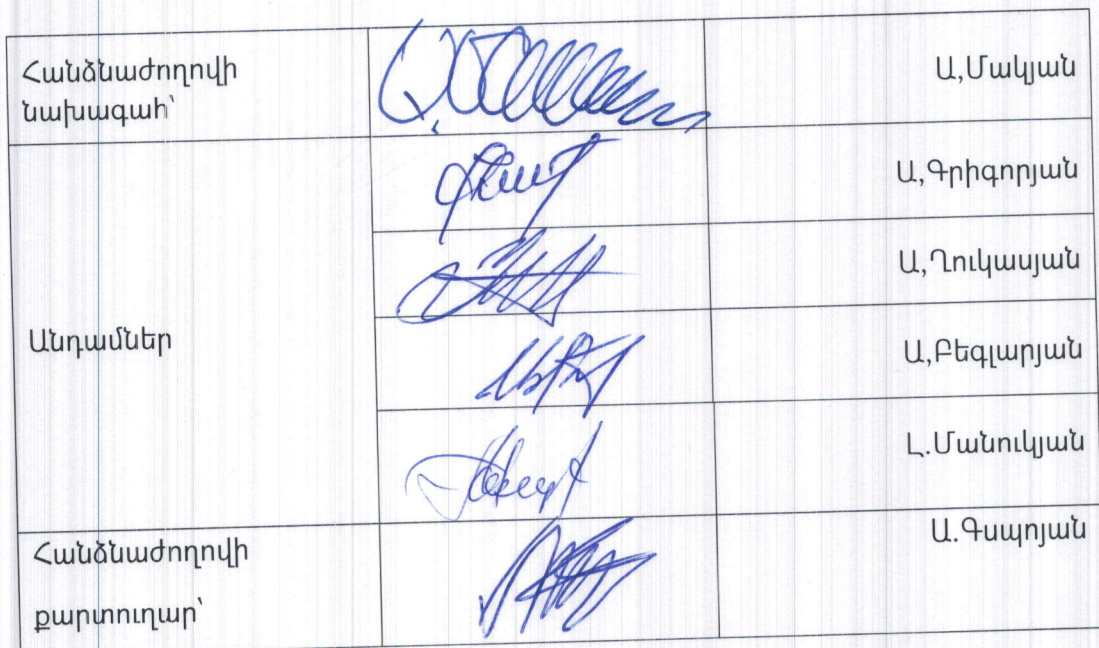 Հանձնաժողովի
նախագահ՝
Ա,Մակյան
Ա,Գրիգորյան
Ա,Ղուկասյան
Անդամներ
Ա,Բեգլարյան
Լ.Մանուկյան
Հանձնաժողովի
քարտուղար՝
Ա.Գսպոյան